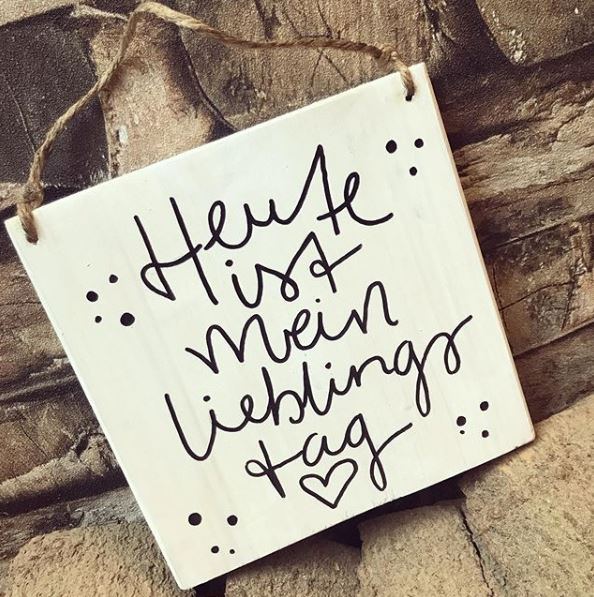 Heute
ist
mein
lieblings
tag